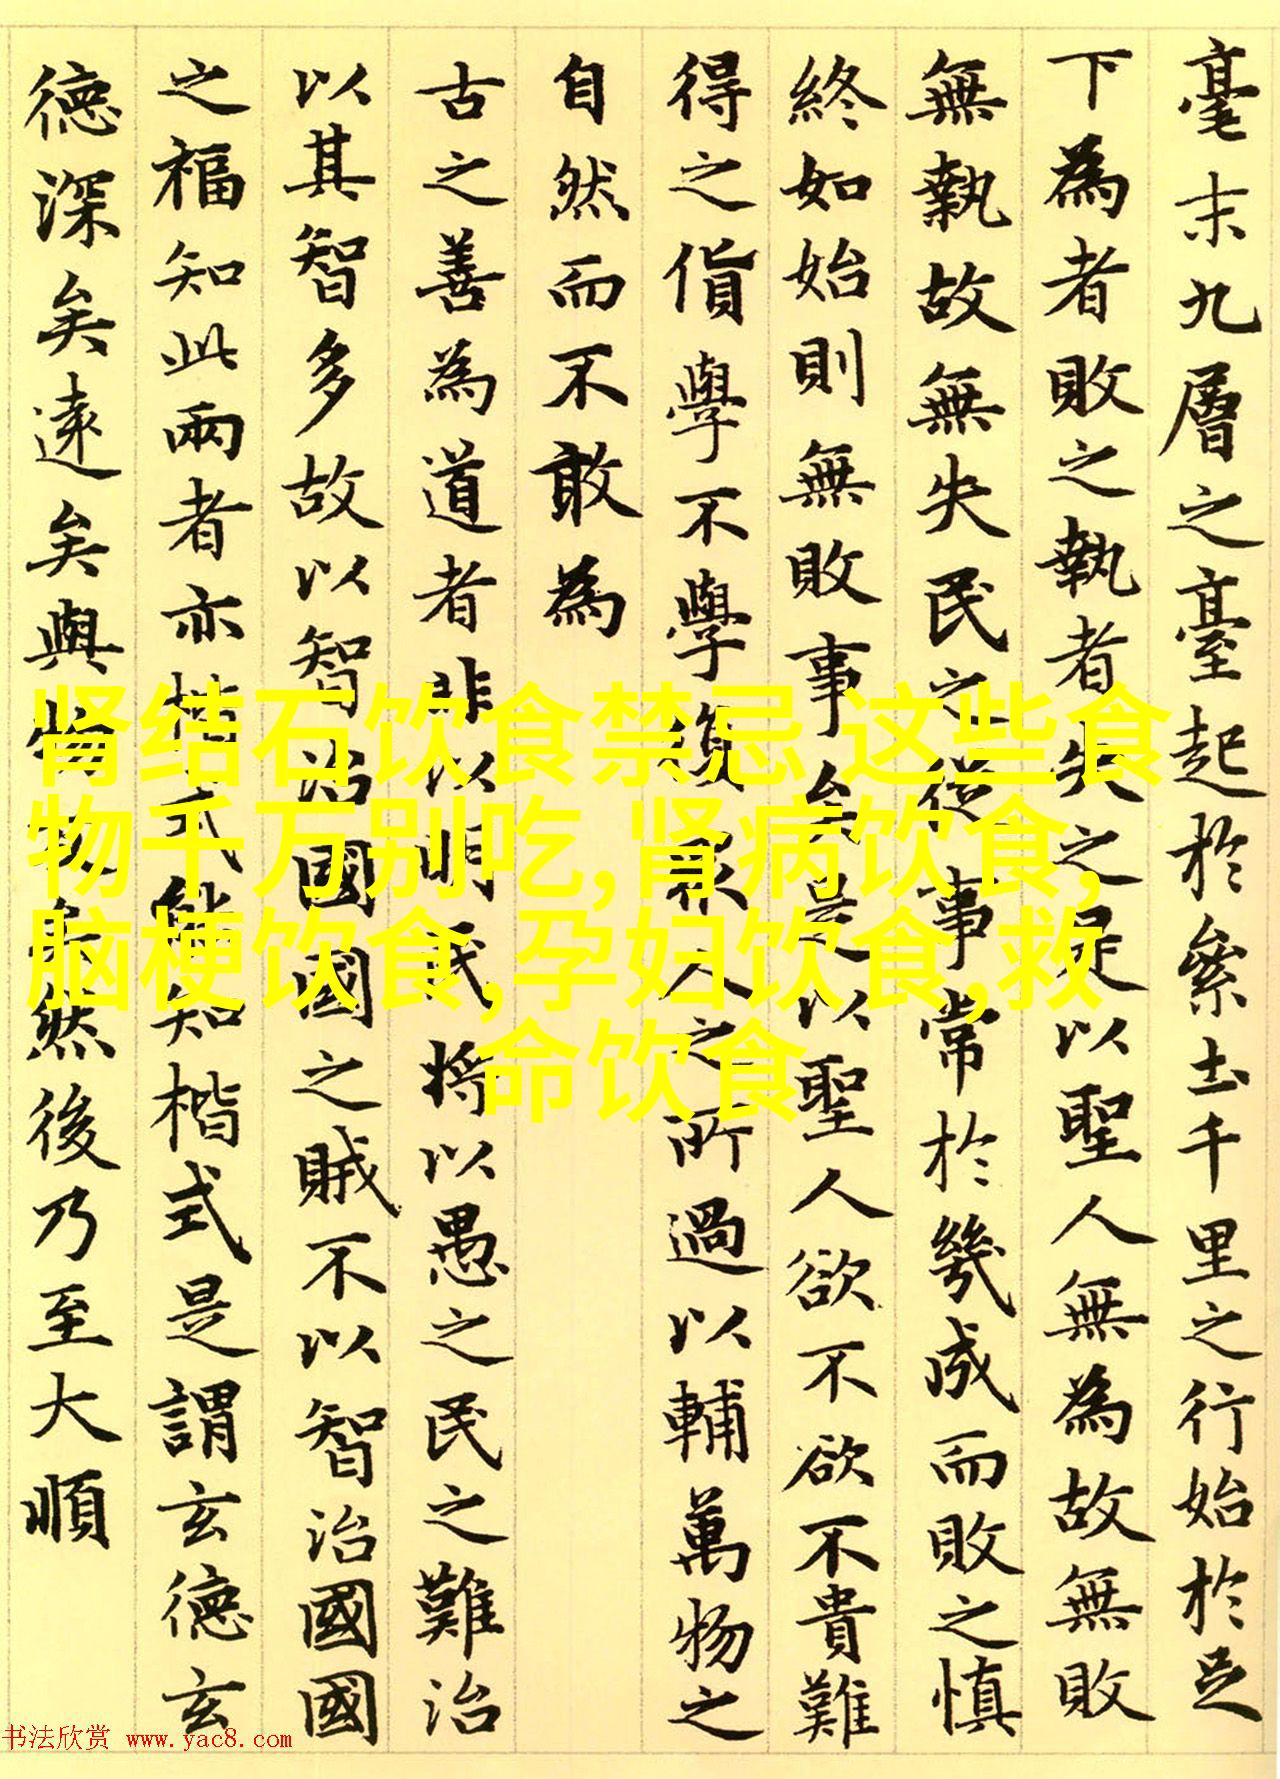 毫末九層之臺起於絫土千里之行始於足
下為者敗之執者失之是以聖人無為故無敗
無執故無失民之從事常於幾成而敗之慎
終如始則無敗事矣是以聖人欲不欲不貴難
得之貨學不學復眾人之所過以輔萬物之
自然而不敢為
古之善為道者非以明民將以愚之民之難治
以其智多故以智治國國之賊不以智治國國
之福知此兩者亦楷式能知楷式是謂玄德玄
德深矣遠矣與物反矣然後乃至大順
肾结石饮食禁忌 这些食
物千万别吃,肾病饮食,
脑梗饮食,孕妇饮食,救
命饮食
书法欣赏 www.yac8.com